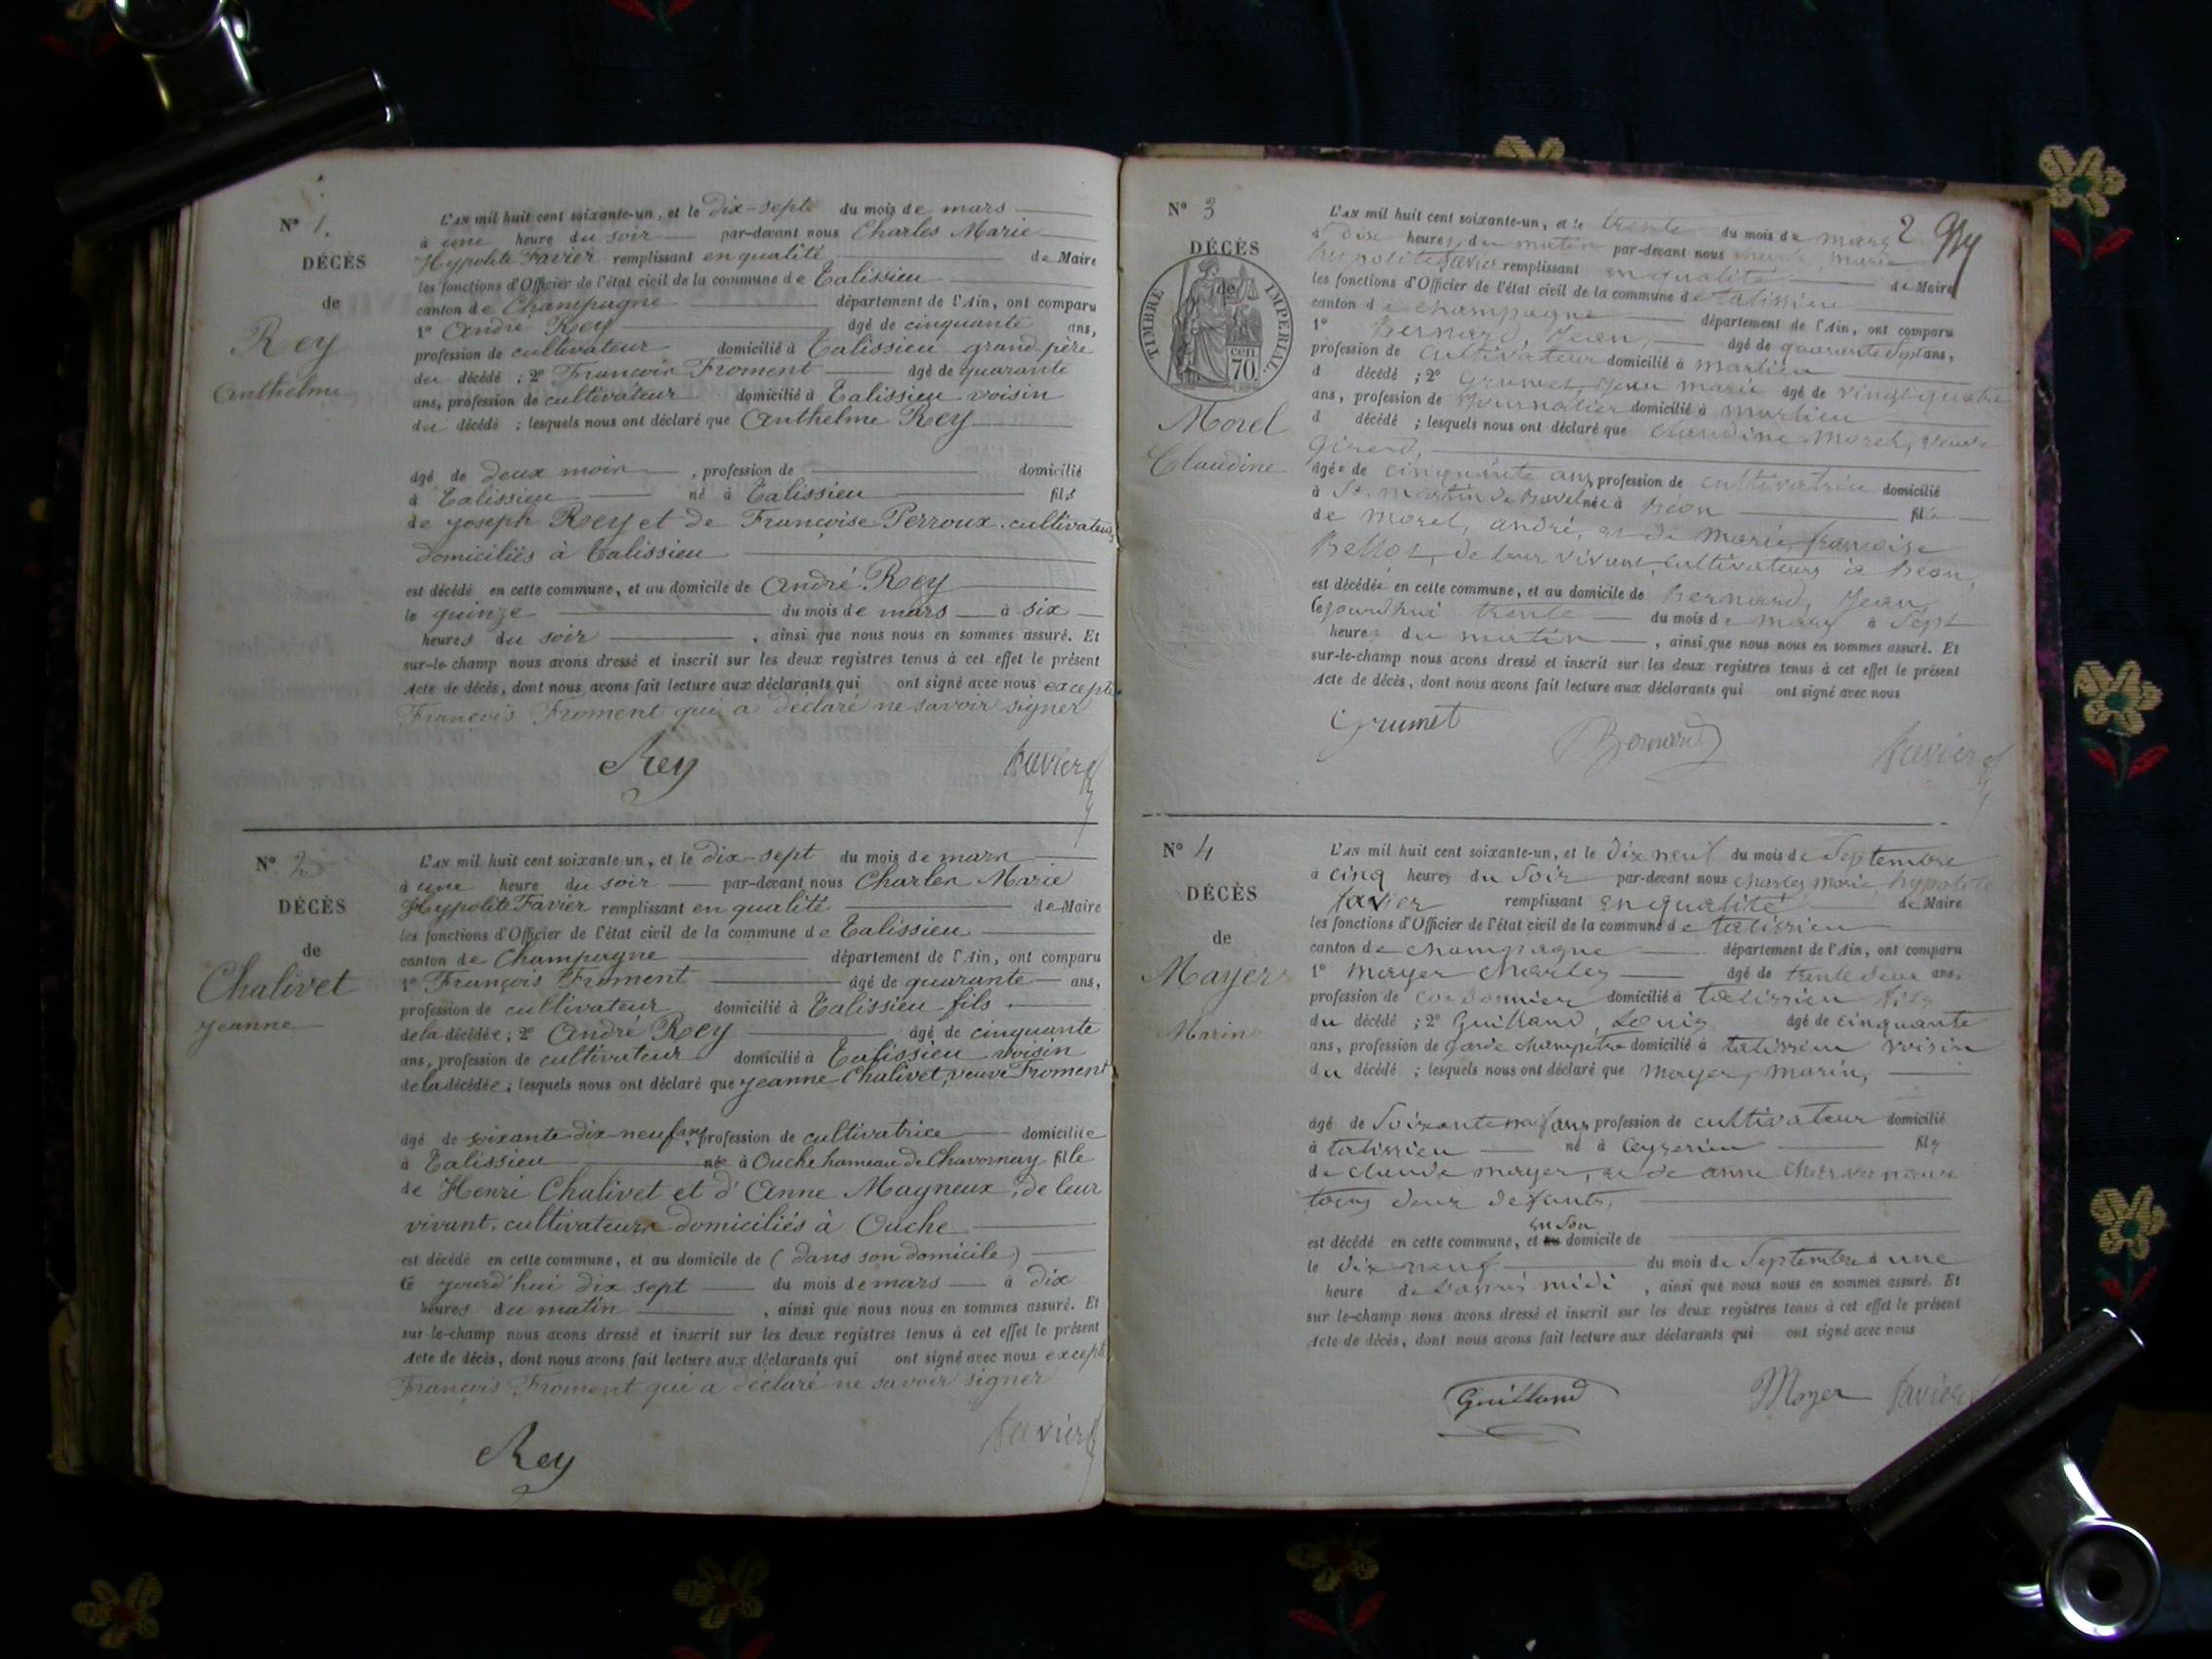 N° 1.
DÉCÈS
de
Rey
Anthelme
L'AN mil huit cent soixante-un, et le dix-sept du mois de mars
à une heure du soir par-devant nous Charles Marie
Hypolite Favier remplissant en qualité de Maire
les fonctions d'Officier de l'état civil de la commune de Talissieu
canton de Champagne département de l'Ain, ont comparu
1° André Rey âgé de cinquante ans,
profession de cultivateur domicilié à Talissieu grand père
du décédé ; 2° François Froment âgé de quarante
ans, profession de cultivateur domicilié à Talissieu voisin
du décédé ; lesquels nous ont déclaré que Anthelme Rey
âgé de deux mois, profession de domicilié
à Talissieu né à Talissieu fils
de Joseph Rey et de Françoise Perroux. cultivateurs
domiciliés à Talissieu
est décédé en cette commune, et au domicile de André Rey
le quinze du mois de mars à six
heures du soir, ainsi que nous nous en sommes assuré. Et
sur-le-champ nous avons dressé et inscrit sur les deux registres tenus à cet effet le présent
Acte de décès, dont nous avons fait lecture aux déclarants qui ont signé avec nous excepté
François Froment qui a déclaré ne savoir signer
Rey Favier
N° 2
DÉCÈS
de
Chalivet
Jeanne
L'AN mil huit cent soixante-un, et le dix-sept du mois de mars
à une heure du soir par-devant nous Charles Marie
Hypolite Favier remplissant en qualité de Maire
les fonctions d'Officier de l'état civil de la commune de Talissieu
canton de Champagne département de l'Ain, ont comparu
1° François Froment âgé de quarante ans,
profession de cultivateur domicilié à Talissieu fils
de la décédée ; 2° André Rey âgé de cinquante
ans, profession de cultivateur domicilié à Talissieu voisin
de la décédée ; lesquels nous ont déclaré que Jeanne Chalivet, veuve Froment
âgé de soixante-dix-neuf ans, profession de cultivatrice domicilié
à Talissieu née à Ouche hameau de Chavornay fille
de Henri Chalivet et d'Anne Magneux, de leur
vivant, cultivateurs domiciliés à Ouche
est décédé en cette commune, et au domicile de (dans son domicile)
Ce jourd'hui dix sept du mois de mars à dix
heures du matin, ainsi que nous nous en sommes assuré. Et
sur-le-champ nous avons dressé et inscrit sur les deux registres tenus à cet effet le présent
Acte de décès, dont nous avons fait lecture aux déclarants qui ont signé avec nous excepté
François Froment qui a déclaré ne savoir signer
Rey Favier
2
N° 3
DÉCÈS
de
TIMBRE IMPERIAL
70 cen
Morel
Claudine
L'AN mil huit cent soixante-un, et le trente du mois de mars
à dix heures du matin par-devant nous Charles Marie
hypolite favier remplissant en qualité de Maire
les fonctions d'Officier de l'état civil de la commune de talissieu
canton de champagne département de l'Ain, ont comparu
1° Bernard, Jean, âgé de quarante Sept ans,
profession de Cultivateur domicilié à marlieu
d décédé ; 2° Grumet, Jean marie âgé de vingt quatre
ans, profession de Journalier domicilié à marlieu
d décédé ; lesquels nous ont déclaré que claudine morel, veuve
Girerd,
âgée de cinquante ans, profession de cultivatrice domicilié
à St martin de Bavel née à Béon fille
de morel, andré, et de marie, françoise
Bellot, de leur vivant, cultivateurs à Béon,
est décédée en cette commune, et au domicile de Bernard, Jean
Cejourdhui trente du mois de mars à Sept
heures du matin, ainsi que nous nous en sommes assuré. Et
sur-le-champ nous avons dressé et inscrit sur les deux registres tenus à cet effet le présent
Acte de décès, dont nous avons fait lecture aux déclarants qui ont signé avec nous
Grumet Bernard Favier
N° 4
DÉCÈS
de
Mayer
Marin
L'AN mil huit cent soixante-un, et le dix neuf du mois de Septembre
à cinq heures du Soir par-devant nous charles marie hypolite
favier remplissant en qualité de Maire
les fonctions d'Officier de l'état civil de la commune de talissieu
canton de champagne département de l'Ain, ont comparu
1° mayer charles âgé de trente deux ans,
profession de cordonnier domicilié à talissieu fils
du décédé ; 2° Guilland, Louis âgé de cinquante
ans, profession de garde champetre domicilié à talissieu voisin
du décédé ; lesquels nous ont déclaré que mayer, marin,
âgé de Soixante neuf ans, profession de cultivateur domicilié
à talissieu né à Ceyzerieu fils
de claude mayer, et de anne
tous deux défunts,
en Son
est décédé en cette commune, et au domicile de
le dix neuf du mois de Septembre à une
heure de l'après midi, ainsi que nous nous en sommes assuré. Et
sur-le-champ nous avons dressé et inscrit sur les deux registres tenus à cet effet le présent
Acte de décès, dont nous avons fait lecture aux déclarants qui ont signé avec nous
Guilland Mayer Favier